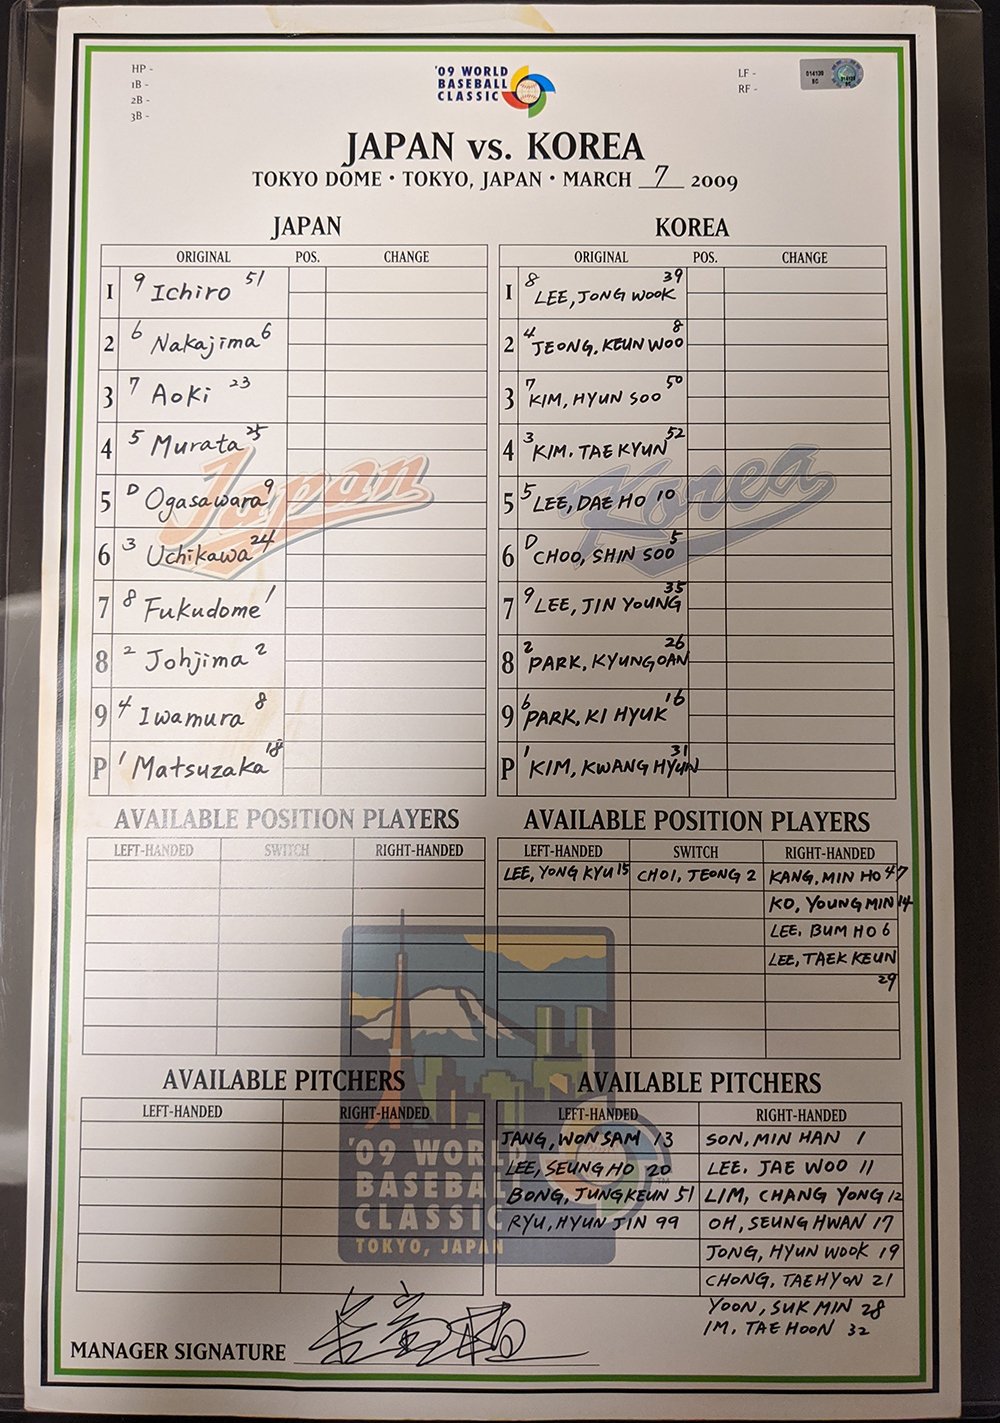 HP -
1B -
2B -
3B -
'09 WORLD
BASEBALL
CLASSIC
LF -
RF -
014139
BC
JAPAN vs. KOREA
TOKYO DOME • TOKYO, JAPAN • MARCH 7 2009
JAPAN
ORIGINAL POS. CHANGE
1 9 Ichiro 51
2 6 Nakajima 6
3 7 Aoki 23
4 5 Murata 25
5 D Ogasawara 9
6 3 Uchikawa 24
7 8 Fukudome 1
8 2 Johjima 2
9 4 Iwamura 8
P 1 Matsuzaka 18
Japan
KOREA
ORIGINAL POS. CHANGE
1 8 LEE, JONG WOOK 39
2 4 JEONG, KEUN WOO 8
3 7 KIM, HYUN SOO 50
4 3 KIM. TAE KYUN 52
5 5 LEE, DAE HO 10
6 D CHOO, SHIN SOO 5
7 9 LEE, JIN YOUNG 35
8 2 PARK, KYUNGOAN 26
9 6 PARK, KI HYUK 16
P 1 KIM, KWANG HYUN 31
Korea
AVAILABLE POSITION PLAYERS
LEFT-HANDED SWITCH RIGHT-HANDED
AVAILABLE POSITION PLAYERS
LEFT-HANDED SWITCH RIGHT-HANDED
LEE, YONG KYU 15 CHOI, JEONG 2 KANG, MIN HO 47
KO, YOUNG MIN 14
LEE. BUM HO 6
LEE, TAEK KEUN
29
AVAILABLE PITCHERS
LEFT-HANDED RIGHT-HANDED
AVAILABLE PITCHERS
LEFT-HANDED RIGHT-HANDED
JANG, WON SAM 13 SON, MIN HAN 1
LEE, SEUNG HO 20 LEE. JAE WOO 11
BONG, JUNGKEUN 51 LIM, CHANG YONG 12
RYU, HYUN JIN 99 OH, SEUNG HWAN 17
JONG, HYUN WOOK 19
CHONG, TAEHYON 21
YOON, SUK MIN 28
IM, TAE HOON 32
'09 WORLD
BASEBALL
CLASSIC
TOKYO, JAPAN
TM
MANAGER SIGNATURE